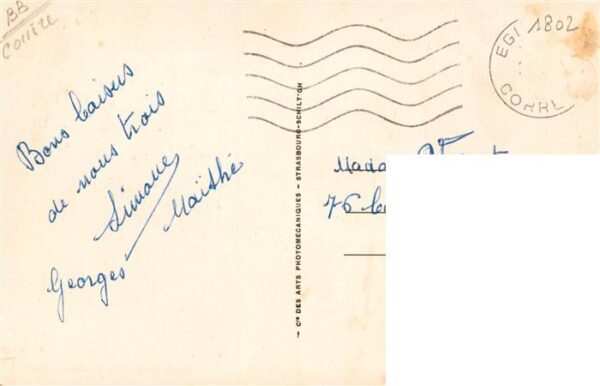 BB
Corrèze
Bons baisers
de nous trois
Simone
Maïthé
Georges
Cie DES ARTS PHOTOMECANIQUES - STRASBOURG-SCHILTIGH
EGL
CORRE
1802
Mada
76